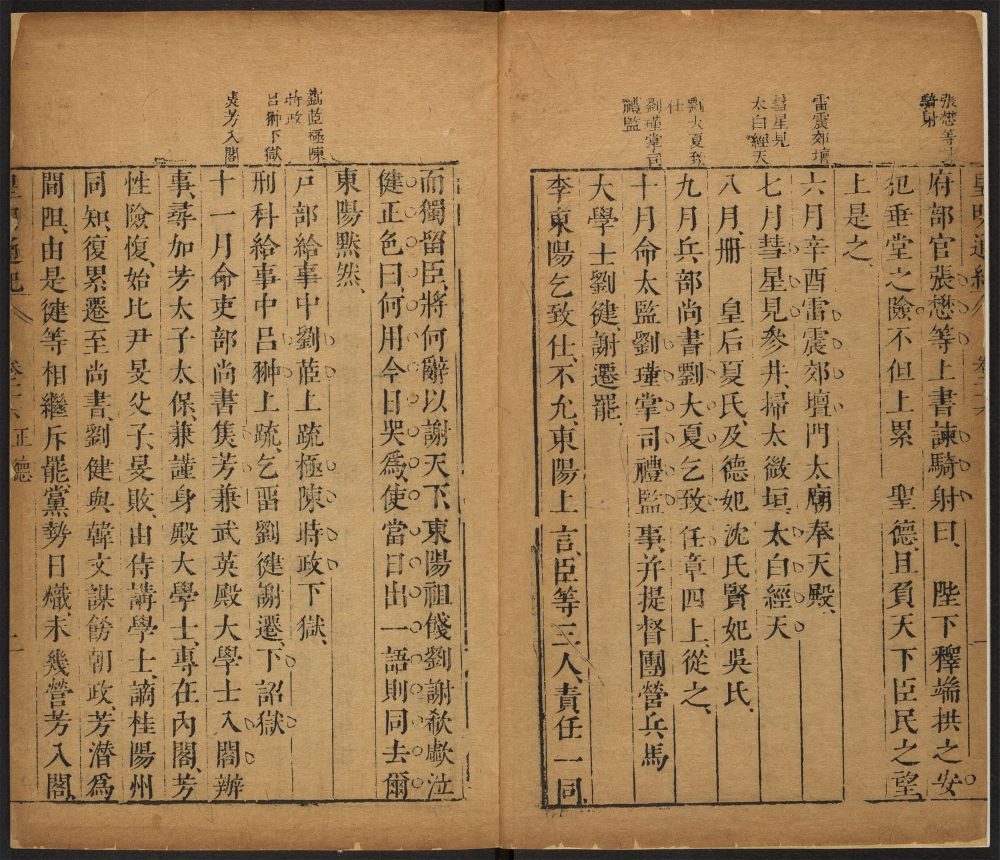 張懋等上
騎射
雷震郊壇
彗星見
太白經天
劉大夏致
仕
劉瑾掌司
禮監
府部官張懋等上書諫騎射曰、　陛下釋端拱之安
犯垂堂之險不但上累　聖德、且負天下臣民之望
上是之、
六月辛酉雷震郊壇門太廟奉天殿、
七月彗星見參井、掃太微垣、太白經天
八月、冊　皇后夏氏、及德妃沈氏賢妃吳氏、
九月兵部尚書劉大夏乞致仕章四上、從之、
十月命太監劉瑾掌司禮監事、并提督團營兵馬
大學士劉健、謝遷罷、
李東陽乞致仕、不允、東陽上言、臣等三人、責任一同、
劉菃極陳
時政
呂翀下獄
焦芳入閣
而獨留臣、將何辭以謝天下、東陽祖餞劉謝欷歔泣
健正色曰、何用今日哭爲、使當日出一語則同去爾
東陽黙然、
戸部給事中劉菃上疏極陳時政下獄、
刑科給事中呂翀上疏、乞畱劉健謝遷、下詔獄
十一月命吏部尚書焦芳兼武英殿大學士入閣辦
事、尋加芳太子太保、兼謹身殿大學士、專在內閣、芳
性險愎、始比尹旻父子、旻敗、由侍講學士、謫桂陽州
同知、復累遷至尚書、劉健與韓文謀飭朝政、芳潛爲
間阻、由是健等相繼斥罷黨勢日熾、未幾營芳入閣、
皇明通紀
正德